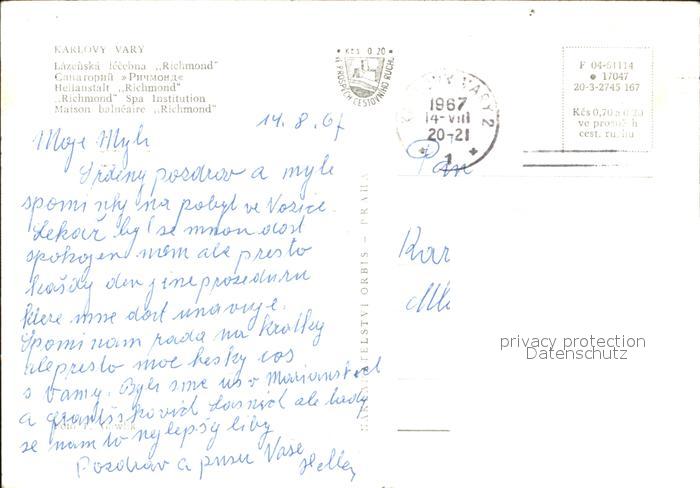 KARLOVY VARY
Lázeňská léčebna ,,Richmond"
Санаторий »Ричмонд«
Heilanstalt ,,Richmond"
,,Richmond" Spa Institution
Maison balnéaire ,,Richmond"
Kčs 0.20
VE PROSPĚCH CESTOVNÍHO RUCHU
KARLOVY VARY 2
1967
14-VIII
20-21
1
F 04-61114
17047
20-3-2745 167
Kčs 0,70 a 0,20
ve prospěch
cest. ruchu
14.8.67
Moje Myli
Srdečny pozdrav a myle
spominky na pobyt ve Vozice.
Lekař byl se mnou dost
spokojen mám ale presto
každy den jine prozeduru
ktere mne dost unavuje.
Spominam rada na kratky
alepresto moc hesky čas
s Vamy. Byli sme us v Marianus
a Františkovich Lasnich ale tady
se nam to nejlepšy liby
Pozdrav a pusu Vase
Helly
Pan
Kar
NAKLADATELSTVÍ ORBIS – PRAHA
privacy protection
Datenschutz